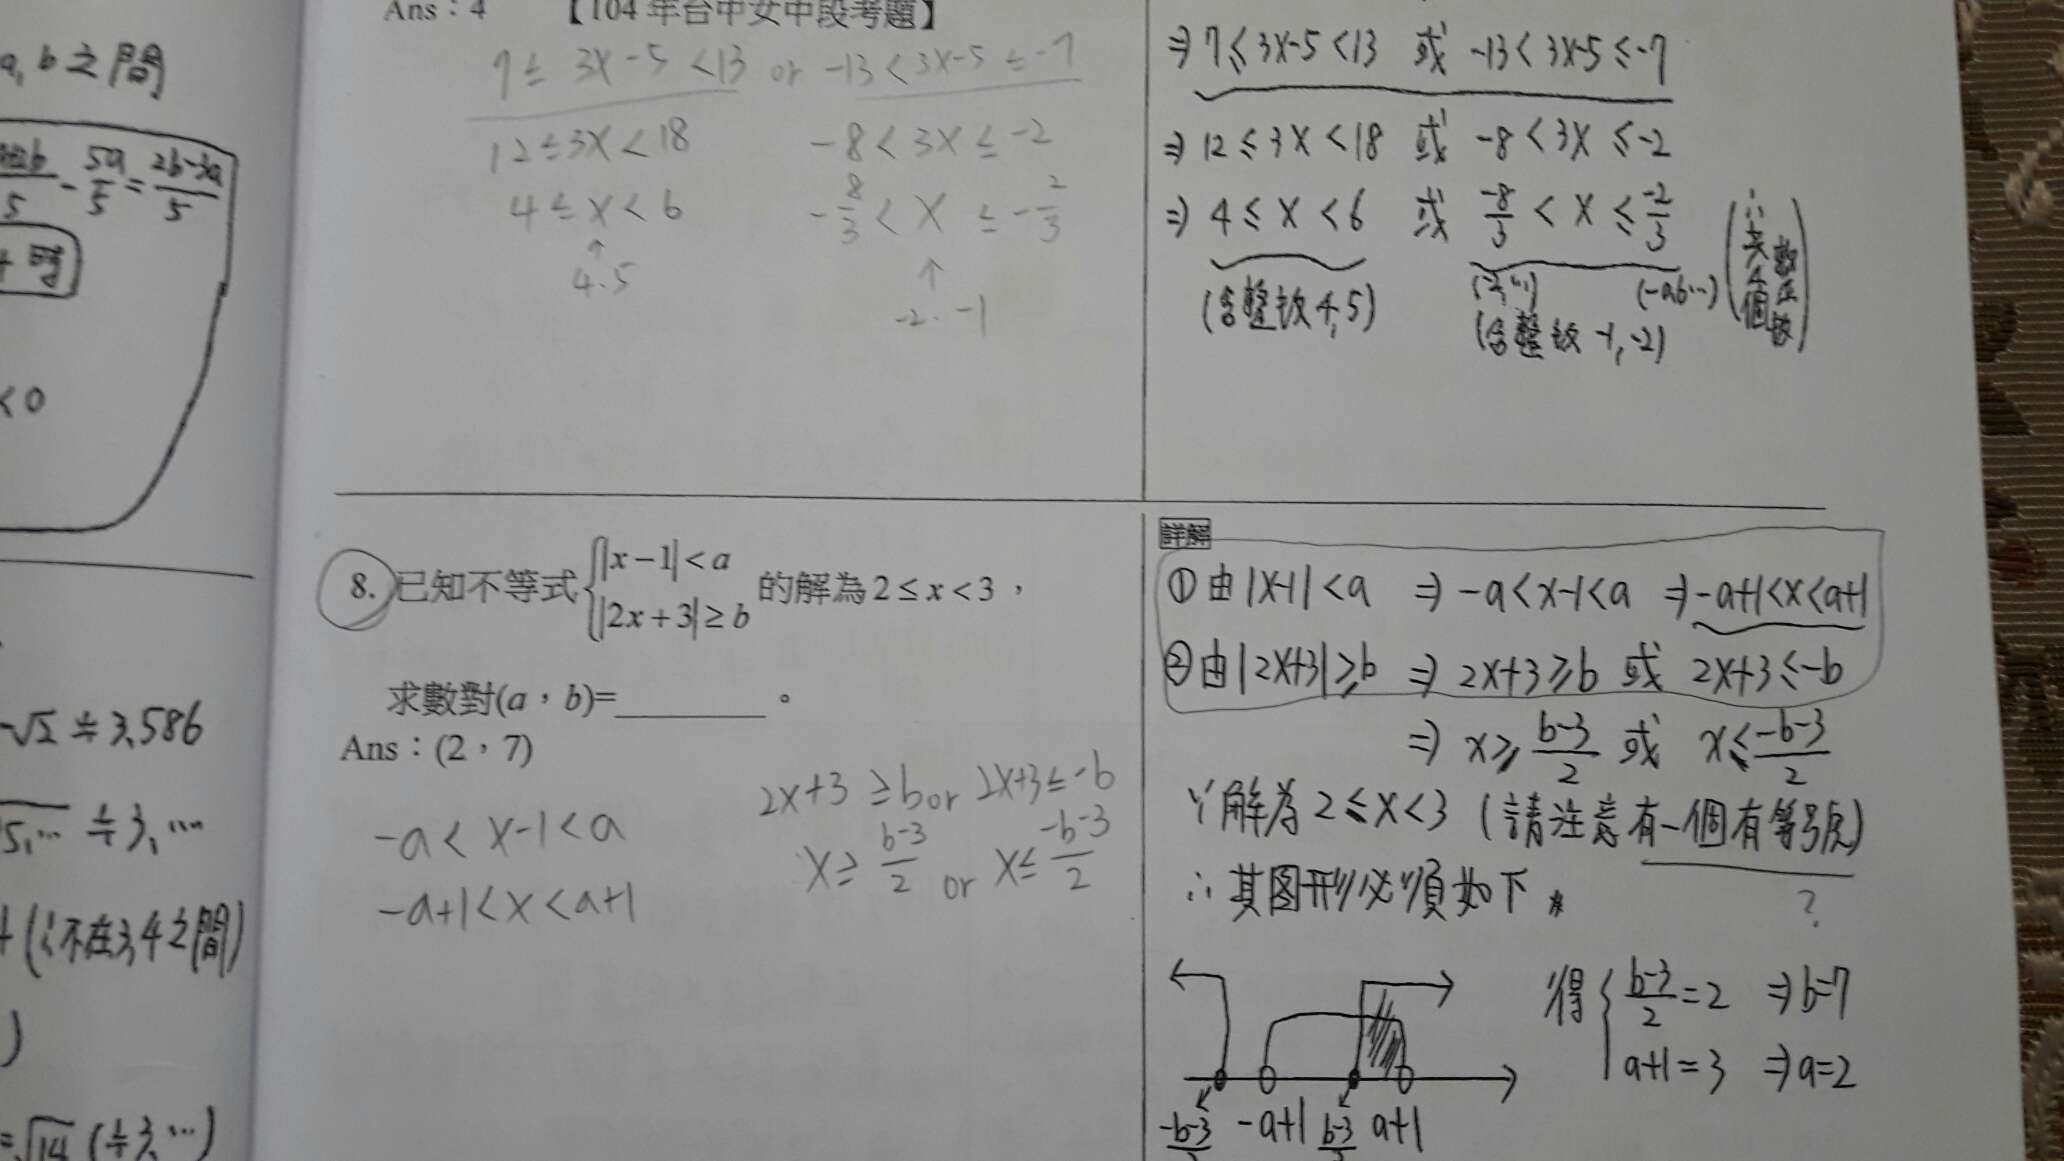 a, b 之間
5a/5 = 2b-3a/5
時
<0
-√2≑3.586
≑3, ...
(∵不在3,4之間)
)
=√14 (≑3, ...)
Ans：4 【104 年台中女中段考題】
7≤ 3x-5 <13 or -13<3x-5≤-7
12≤3x<18 -8<3x≤-2
4≤x<6 -8/3<x≤-2/3
↑ ↑
4.5 -2. -1
⇒ 7≤3x-5<13 或 -13<3x-5≤-7
⇒ 12≤3x<18 或 -8<3x≤-2
⇒ 4≤x<6 或 -8/3<x≤-2/3
(含整數4,5) (含整數-1,-2)
8. 已知不等式{|x-1|<a |2x+3|≥b 的解為2≤x<3，
求數對(a，b)=________。
Ans：(2，7)
-a< x-1<a
-a+1<x<a+1
2x+3≥b or 2x+3≤-b
x≥ b-3/2 or x≤ -b-3/2
詳解
①由|x-1|<a ⇒ -a<x-1<a ⇒ -a+1<x<a+1
②由|2x+3|≥b ⇒ 2x+3≥b 或 2x+3≤-b
⇒ x≥ b-3/2 或 x≤ -b-3/2
∵解為2≤x<3 (請注意有一個有等號)
?
∴其图形必須如下
-b-3/2 -a+1 b-3/2 a+1
得{ b-3/2=2 ⇒b=7
a+1=3 ⇒a=2